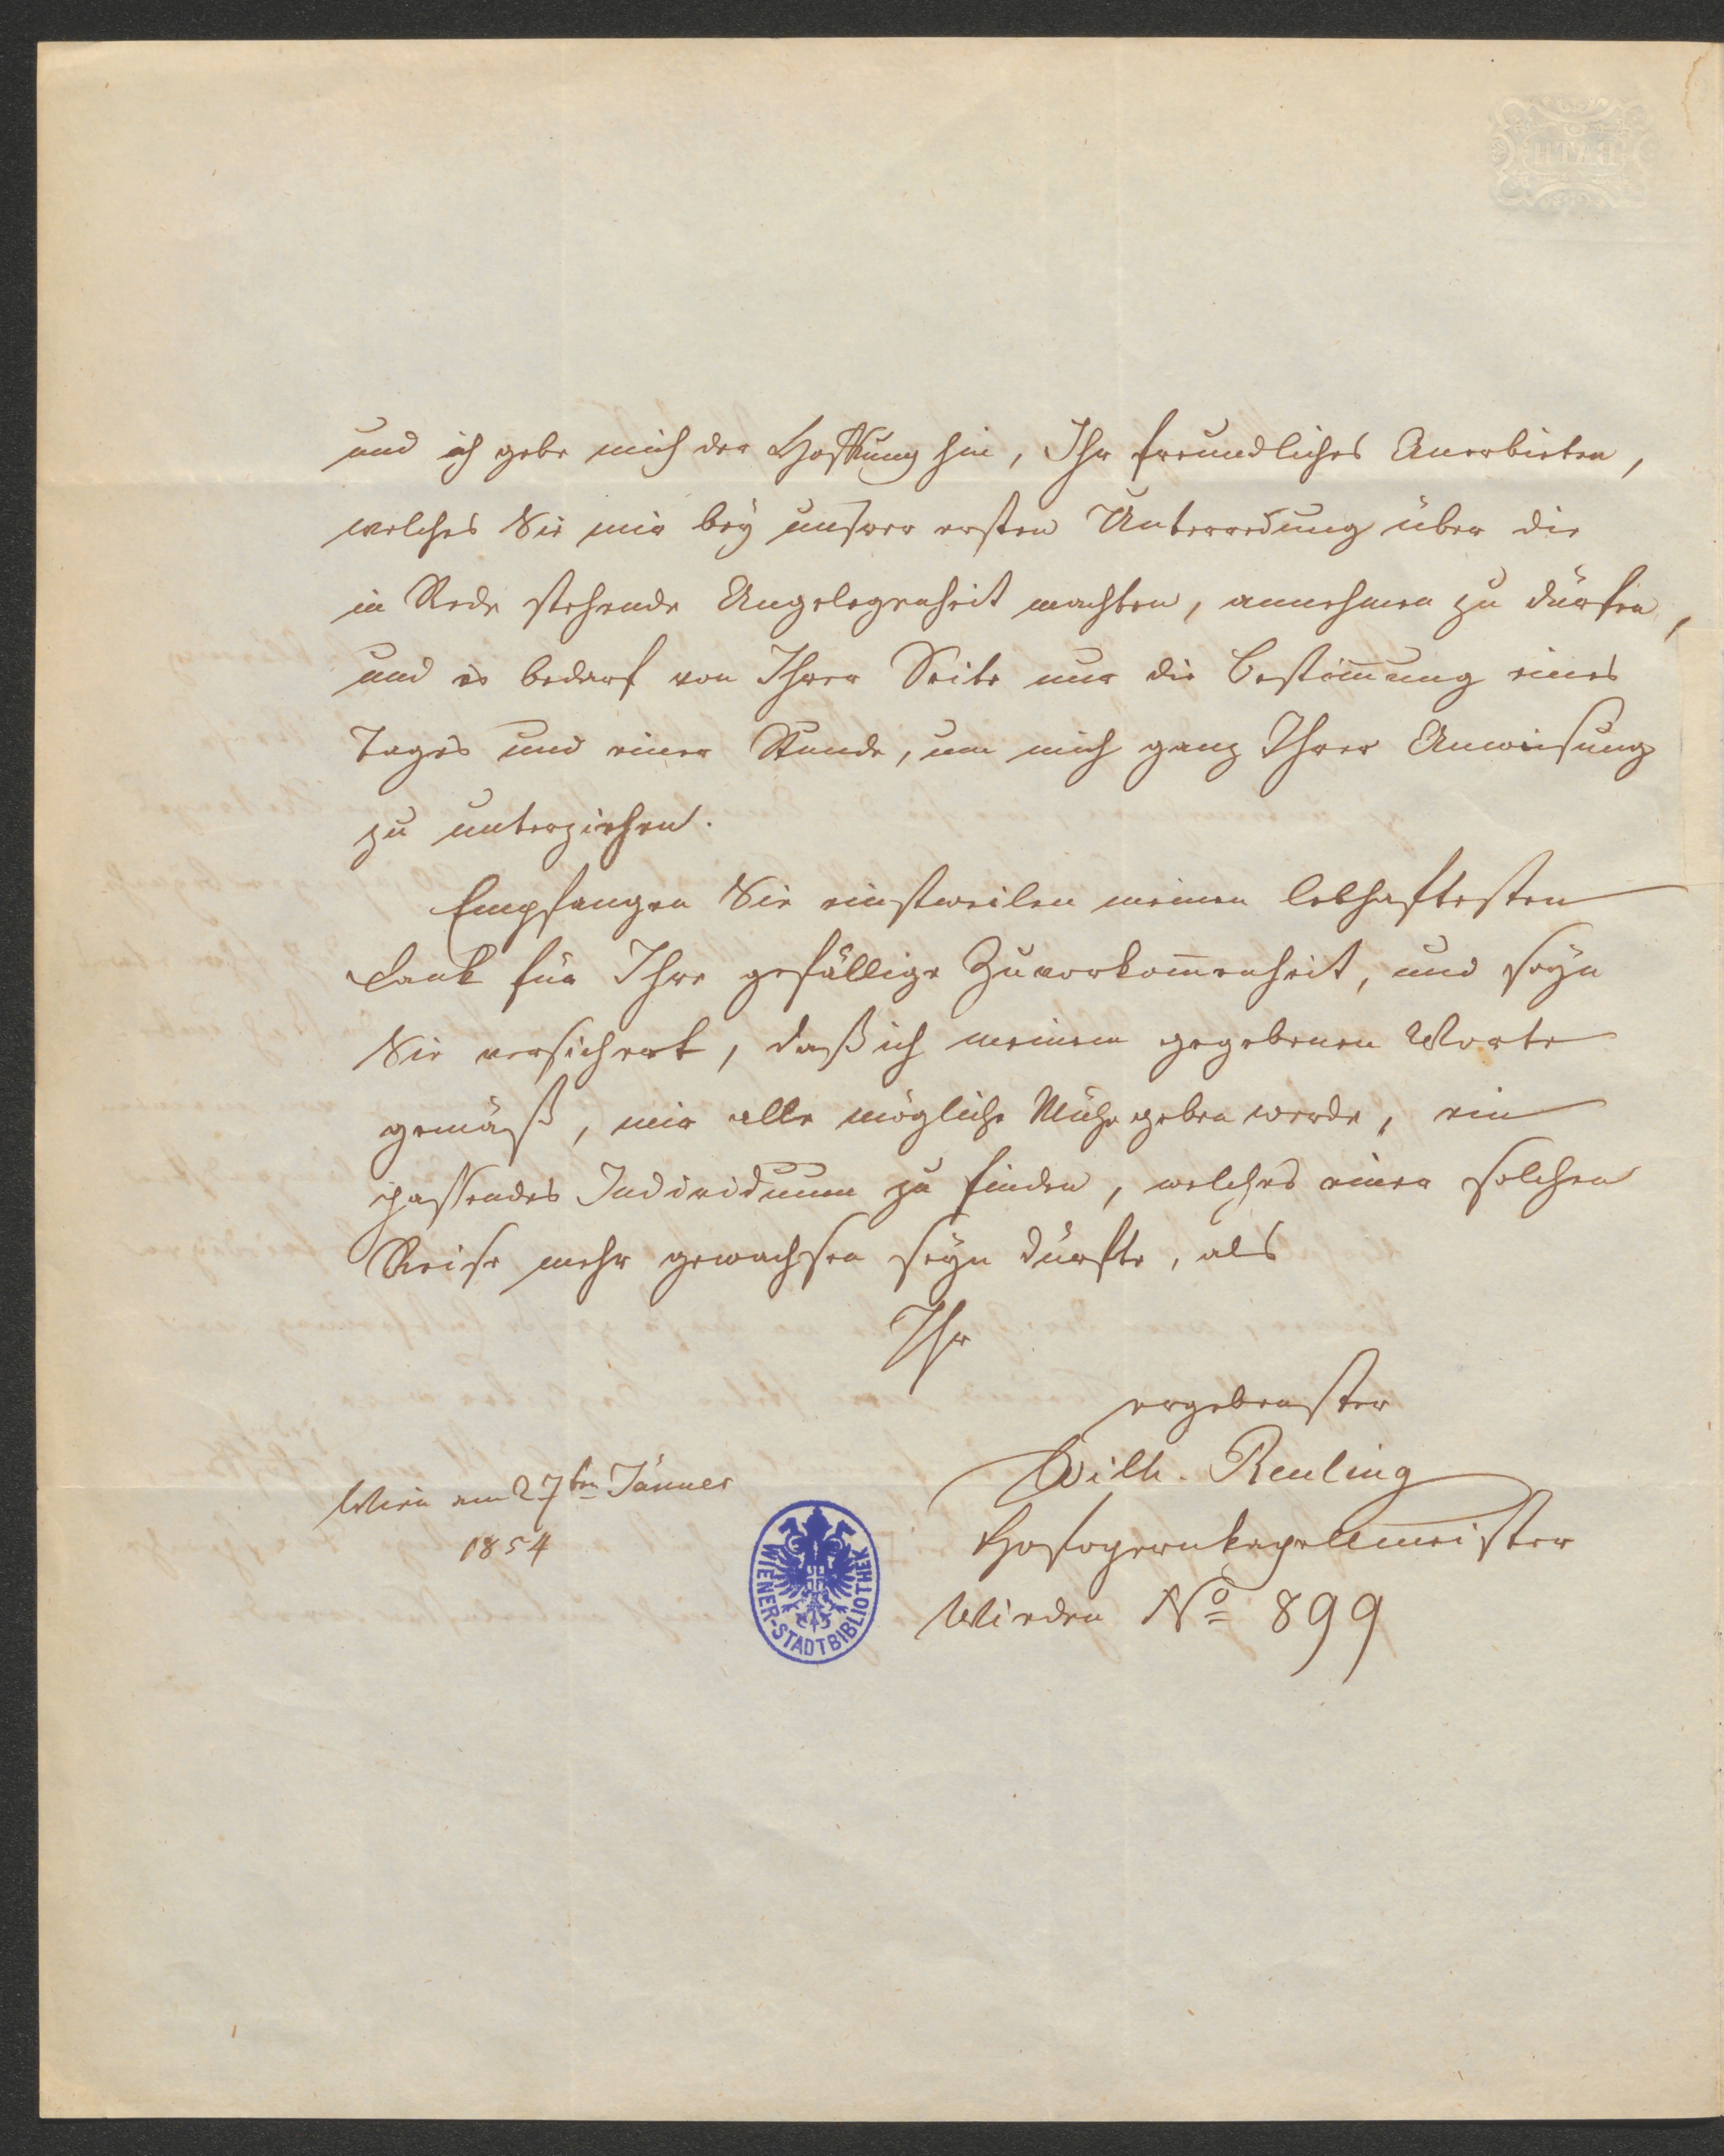 und ich gebe mich der Hoffnung hin, Ihr freundliches Anerbieten,
welches Sie mir bey unserer ersten Unterredung über die
in Rede stehende Angelegenheit machten, annehmen zu dürfen,
und es bedarf von Ihrer Seite nur die Bestim̄ung eines
Tages und einer Stunde, um mich ganz Ihrer Anweisung
zu unterziehen.
Empfangen Sie einstweilen meinen lebhaftesten
Dank für Ihre gefällige Zuvorkom̄enheit, und seyn
Sie versichert, daß ich meinem gegebenen Worte
gemäß, mir alle mögliche Mühe geben werde, ein
passendes Individuum zu finden, welches einer solchen
Reise mehr gewachsen seyn dürfte, als
Ihr
ergebenster
Wilh. Reuling
Hofopernkapellmeister
Wieden No 899
Wien am 27ten Jänner
1854
WIENER-STADTBIBLIOTHEK
BATH